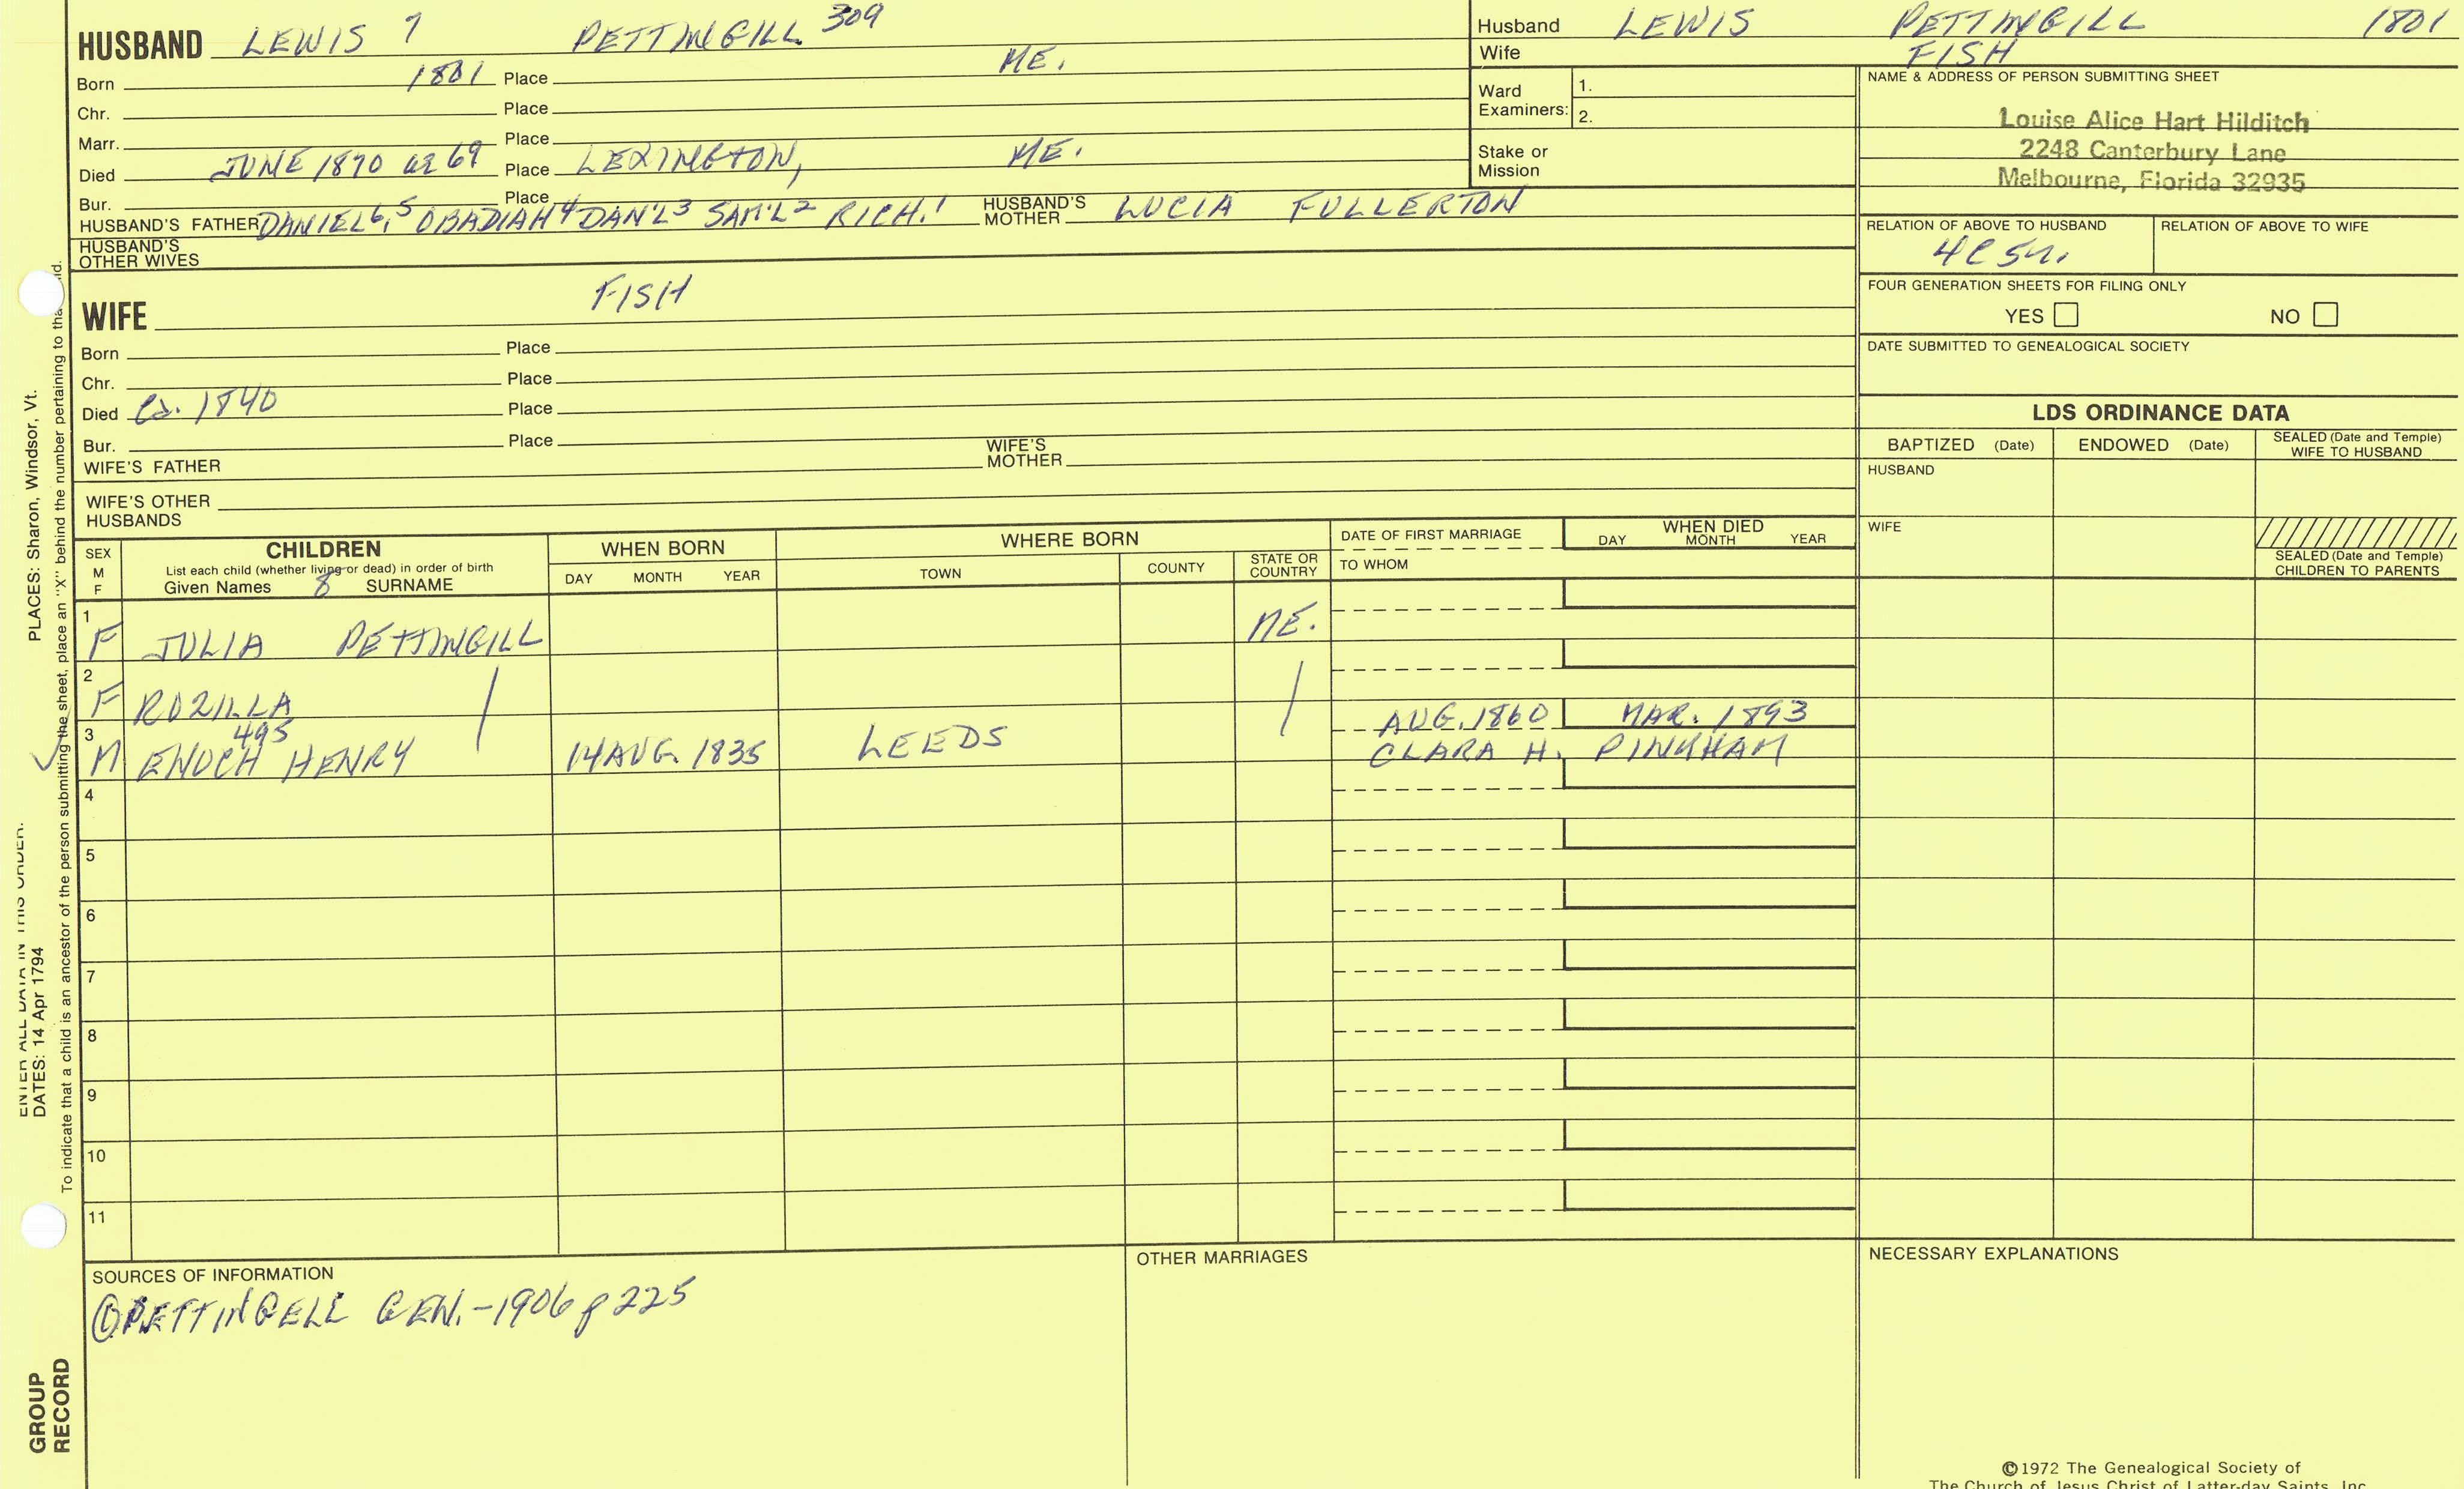 HUSBAND LEWIS 7 PETTINGILL 309
Born 1801 Place ME.
Chr. Place
Marr. Place
Died JUNE 1870 ae 69 Place LEXINGTON, ME.
Bur. Place
HUSBAND'S FATHER DANIEL 6,5 OBADIAH 4 DAN'L 3 SAM'L 2 RICH. 1 HUSBAND'S MOTHER LUCIA FULLERTON
HUSBAND'S OTHER WIVES
WIFE FISH
Born Place
Chr. Place
Died Ca. 1840 Place
Bur. Place
WIFE'S FATHER WIFE'S MOTHER
WIFE'S OTHER HUSBANDS
Husband LEWIS PETTINGILL 1801
Wife FISH
Ward Examiners: 1.
2.
Stake or Mission
NAME & ADDRESS OF PERSON SUBMITTING SHEET
Louise Alice Hart Hilditch
2248 Canterbury Lane
Melbourne, Florida 32935
RELATION OF ABOVE TO HUSBAND RELATION OF ABOVE TO WIFE
FOUR GENERATION SHEETS FOR FILING ONLY
YES NO
DATE SUBMITTED TO GENEALOGICAL SOCIETY
LDS ORDINANCE DATA
BAPTIZED (Date) ENDOWED (Date) SEALED (Date and Temple) WIFE TO HUSBAND
HUSBAND
WIFE
SEALED (Date and Temple) CHILDREN TO PARENTS
SEX M F
CHILDREN
List each child (whether living or dead) in order of birth
Given Names 8 SURNAME
WHEN BORN
DAY MONTH YEAR
WHERE BORN
TOWN COUNTY STATE OR COUNTRY
DATE OF FIRST MARRIAGE
TO WHOM
WHEN DIED
DAY MONTH YEAR
1 F JULIA PETTINGILL ME.
2 F ROZILLA
3 M 495 ENOCH HENRY 14 AUG. 1835 LEEDS AUG. 1860 MAR. 1893
CLARA H. PINKHAM
4
5
6
7
8
9
10
11
SOURCES OF INFORMATION
① PETTINGELL GEN. - 1906 p 225
OTHER MARRIAGES
NECESSARY EXPLANATIONS
©1972 The Genealogical Society of
The Church of Jesus Christ of Latter-day Saints, Inc.
ENTER ALL DATA IN THIS ORDER:
DATES: 14 Apr 1794 PLACES: Sharon, Windsor, Vt.
To indicate that a child is an ancestor of the person submitting the sheet, place an "X" behind the number pertaining to that child.
GROUP RECORD